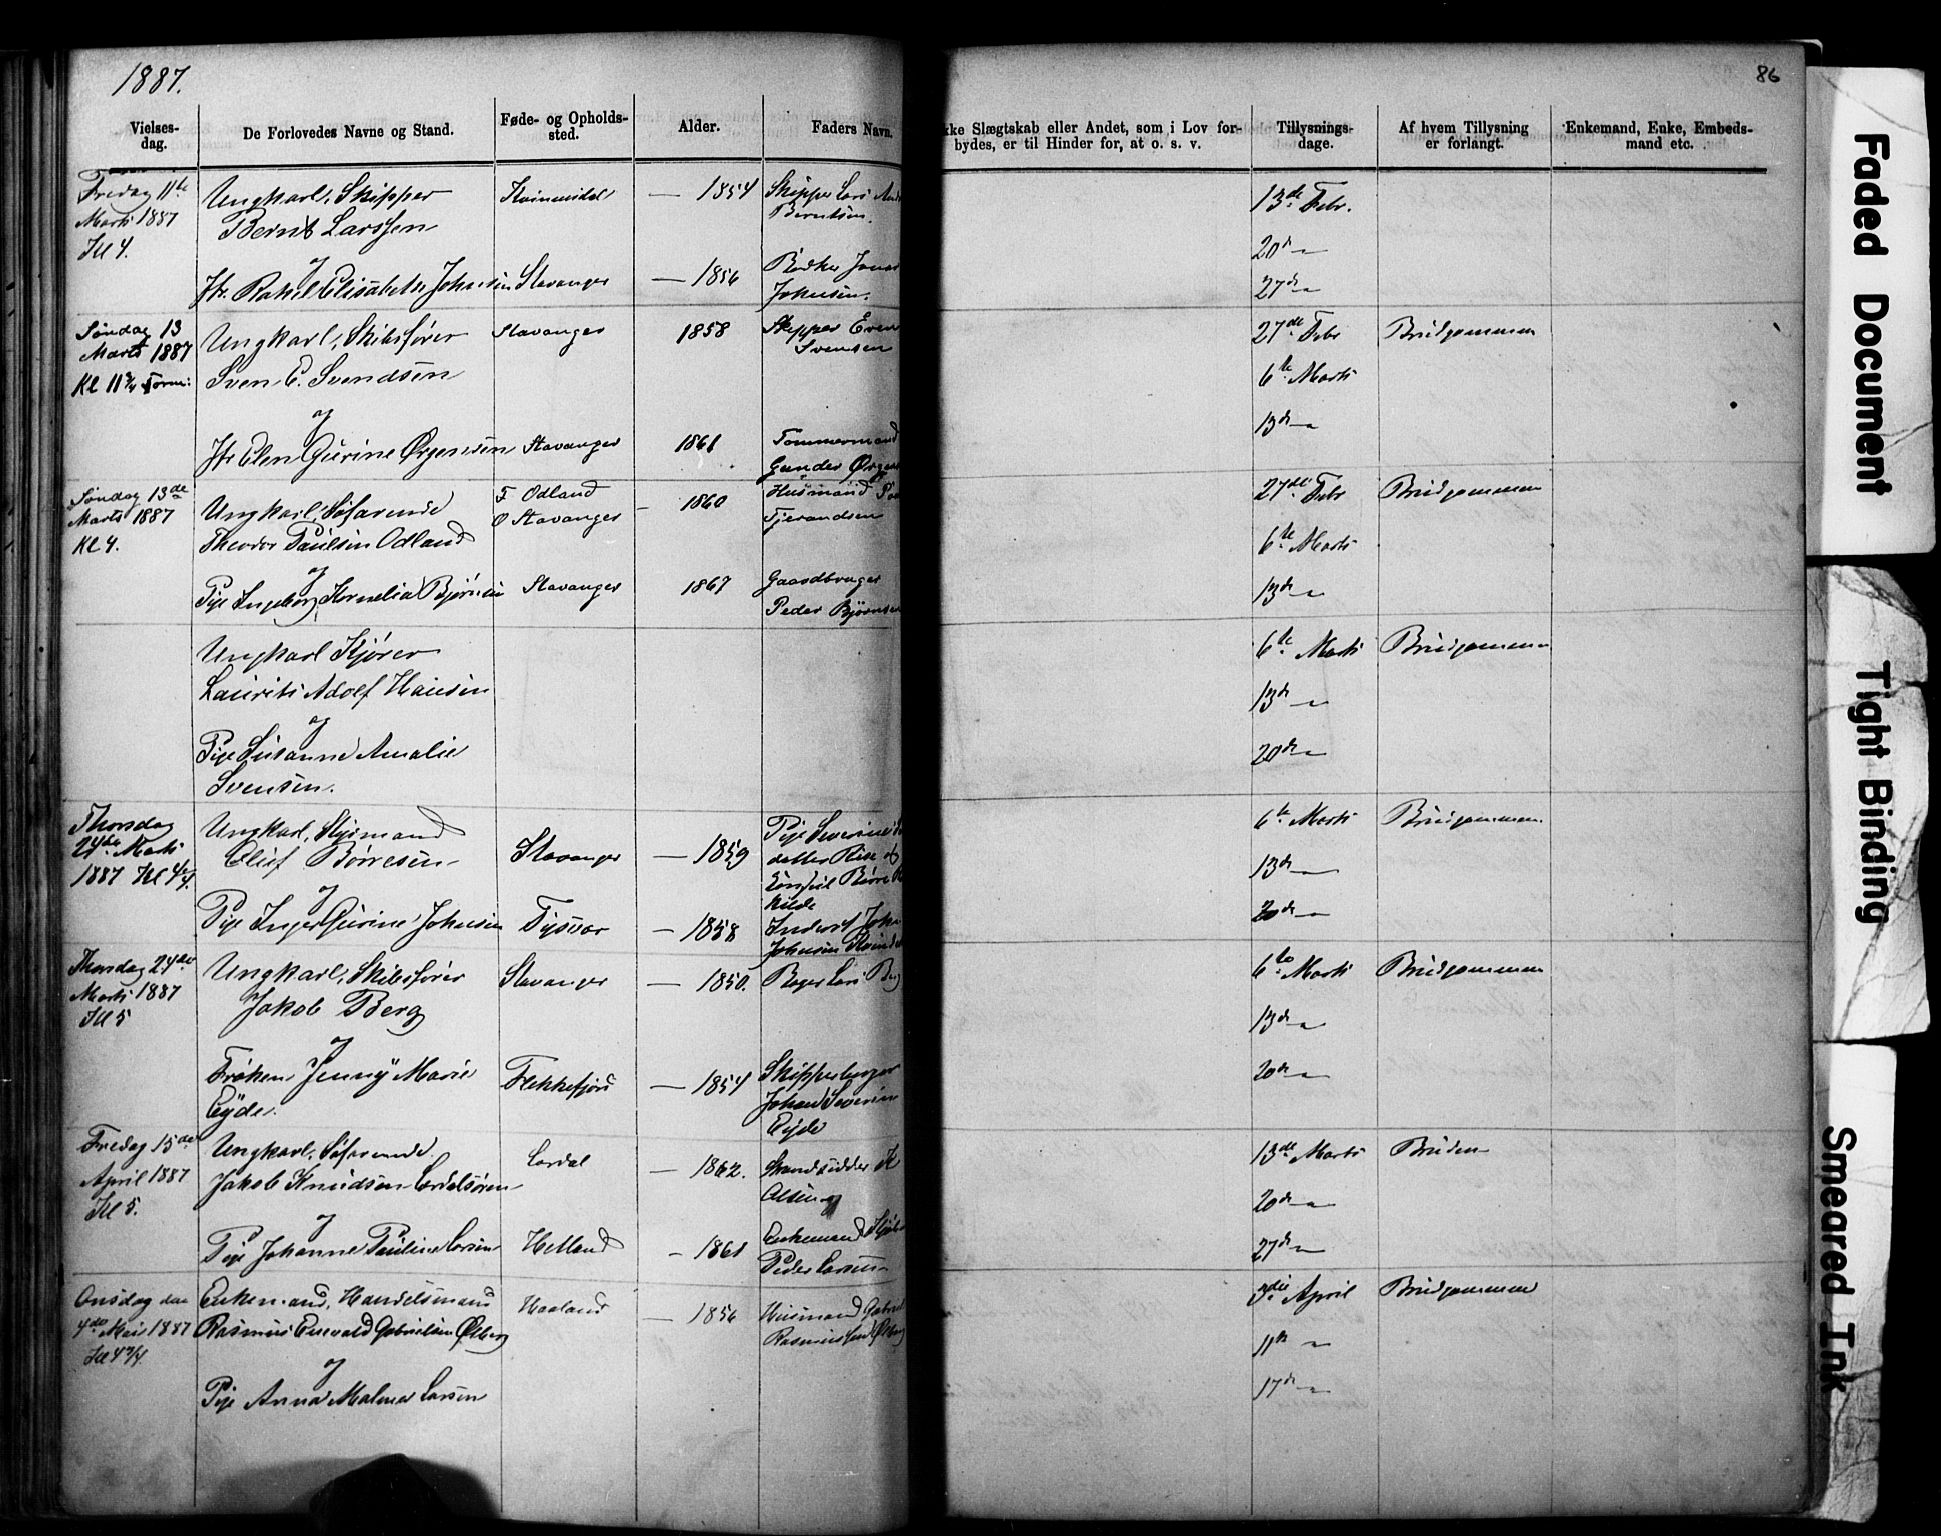 1887.
86
Vielses-
dag.
De Forlovedes Navne og Stand.
Føde- og Opholds-
sted.
Alder.
Faders Navn.
kke Slægtskab eller Andet, som i Lov for-
bydes, er til Hinder for, at o. s. v.
Tillysnings-
dage.
Af hvem Tillysning
er forlangt.
Enkemand, Enke, Embeds-
mand etc.
Fredag 11te
Marts 1887
Kl 4.
Ungkarl, Skipper
Bernt Larssen
og
Jfr. Rakel Elisabeth Johnsen
Stavanger
— 1854
— 1856
Skipper Lars
Berntsen.
Bødker Jonas
Johnsen.
13de Febr.
20de —
27de —
Søndag 13
Marts 1887
Kl 11 3/4 Form:
Ungkarl, Skibsfører
Sven E. Svendsen
og
Jfr Elen Gurine Ørgensen
Stavanger
Stavanger
1858
1861
Skipper Even
Svensen
Tømmermand
Gunder
27de Febr
6te Marts
13de —
Brudgommen
Søndag 13de
Marts 1887
Kl 4.
Ungkarl, Søfarende
Theodor Paulsen Odland
og
Pige Ingeborg Kornelia Bjørnsen
F Odland
O Stavanger
Stavanger
— 1860
1867
Husmand
Tjerandsen
Gaardbruger
Peder Bjørnsen
27de Febr
6te Marts
13de —
Brudgommen
Ungkarl Kjører
Laurits Adolf Hansen
og
Pige Susanne Amalie
Svensen.
6te Marts
13de —
20de —
Brudgommen
Thorsdag
24de Marts
1887 Kl 4 1/4.
Ungkarl, Styrmand
Oluf Børresen
og
Pige Inger Gurine Johnsen
Stavanger
Tysvær
— 1859
— 1858
Pige Severine
datter Rise og
Konsul Børre
kilde
Inderst John
Johnsen
6te Marts
13de —
20de —
Brudgommen
Thorsdag 24de
Marts 1887
Kl 5
Ungkarl, Skibsfører
Jakob Berg
og
Frøken Jenny Marie
Eyde.
Stavanger
Flekkefjord
— 1850.
— 1854
Lars Berg
Skipperborger
Johan Severin
Eyde
6te Marts
13de —
20de —
Brudgommen
Fredag 15de
April 1887
Kl 5.
Ungkarl, Søfarende
Jakob Knudsen
og
Pige Johanne Pauline Larsen
Hetland
— 1862.
— 1861
Strandsidder K
Olsen
Enkemand
Peder Larsen
13de Marts
20de —
27de —
Bruden
Onsdag den
4de Mai 1887
Kl 4 3/4.
Enkemand, Handelsmand
Rasmus Enevald Gabrielsen Ølberg
og
Pige Anna Malene Larsen
Haaland
— 1856
Husmand Gabriel
Rasmussen Ølberg
3die April
11te —
17de —
Brudgommen
Faded Document
Tight Binding
Smeared Ink